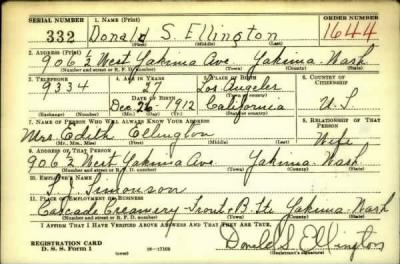 SERIAL NUMBER 1. NAME (Print) ORDER NUMBER
332 Donald S. Ellington 1644
(First) (Middle) (Last)
2. ADDRESS (Print)
906 1/2 West Yakima Ave. Yakima, Wash
(Number and street or R. F. D. number) (Town) (County) (State)
3. TELEPHONE 4. AGE IN YEARS 5. PLACE OF BIRTH 6. COUNTRY OF CITIZENSHIP
9334 27 Los Angeles
DATE OF BIRTH (Town or county)
Dec. 26 - 1912 California U.S.
(Exchange) (Number) (Mo.) (Day) (Yr.) (State or country)
7. NAME OF PERSON WHO WILL ALWAYS KNOW YOUR ADDRESS 8. RELATIONSHIP OF THAT PERSON
Mrs. Edith Ellington Wife
(Mr., Mrs., Miss) (First) (Middle) (Last)
9. ADDRESS OF THAT PERSON
906 1/2 West Yakima Ave. Yakima Wash
(Number and street or R. F. D. number) (Town) (County) (State)
10. EMPLOYER'S NAME
Simonson
11. PLACE OF EMPLOYMENT OR BUSINESS
Cascade Creamery - Front & B Sts Yakima - Wash
(Number and street or R. F. D. number) (Town) (County) (State)
I AFFIRM THAT I HAVE VERIFIED ABOVE ANSWERS AND THAT THEY ARE TRUE.
REGISTRATION CARD
D. S. S. Form 1 Donald S. Ellington
(Registrant's signature)